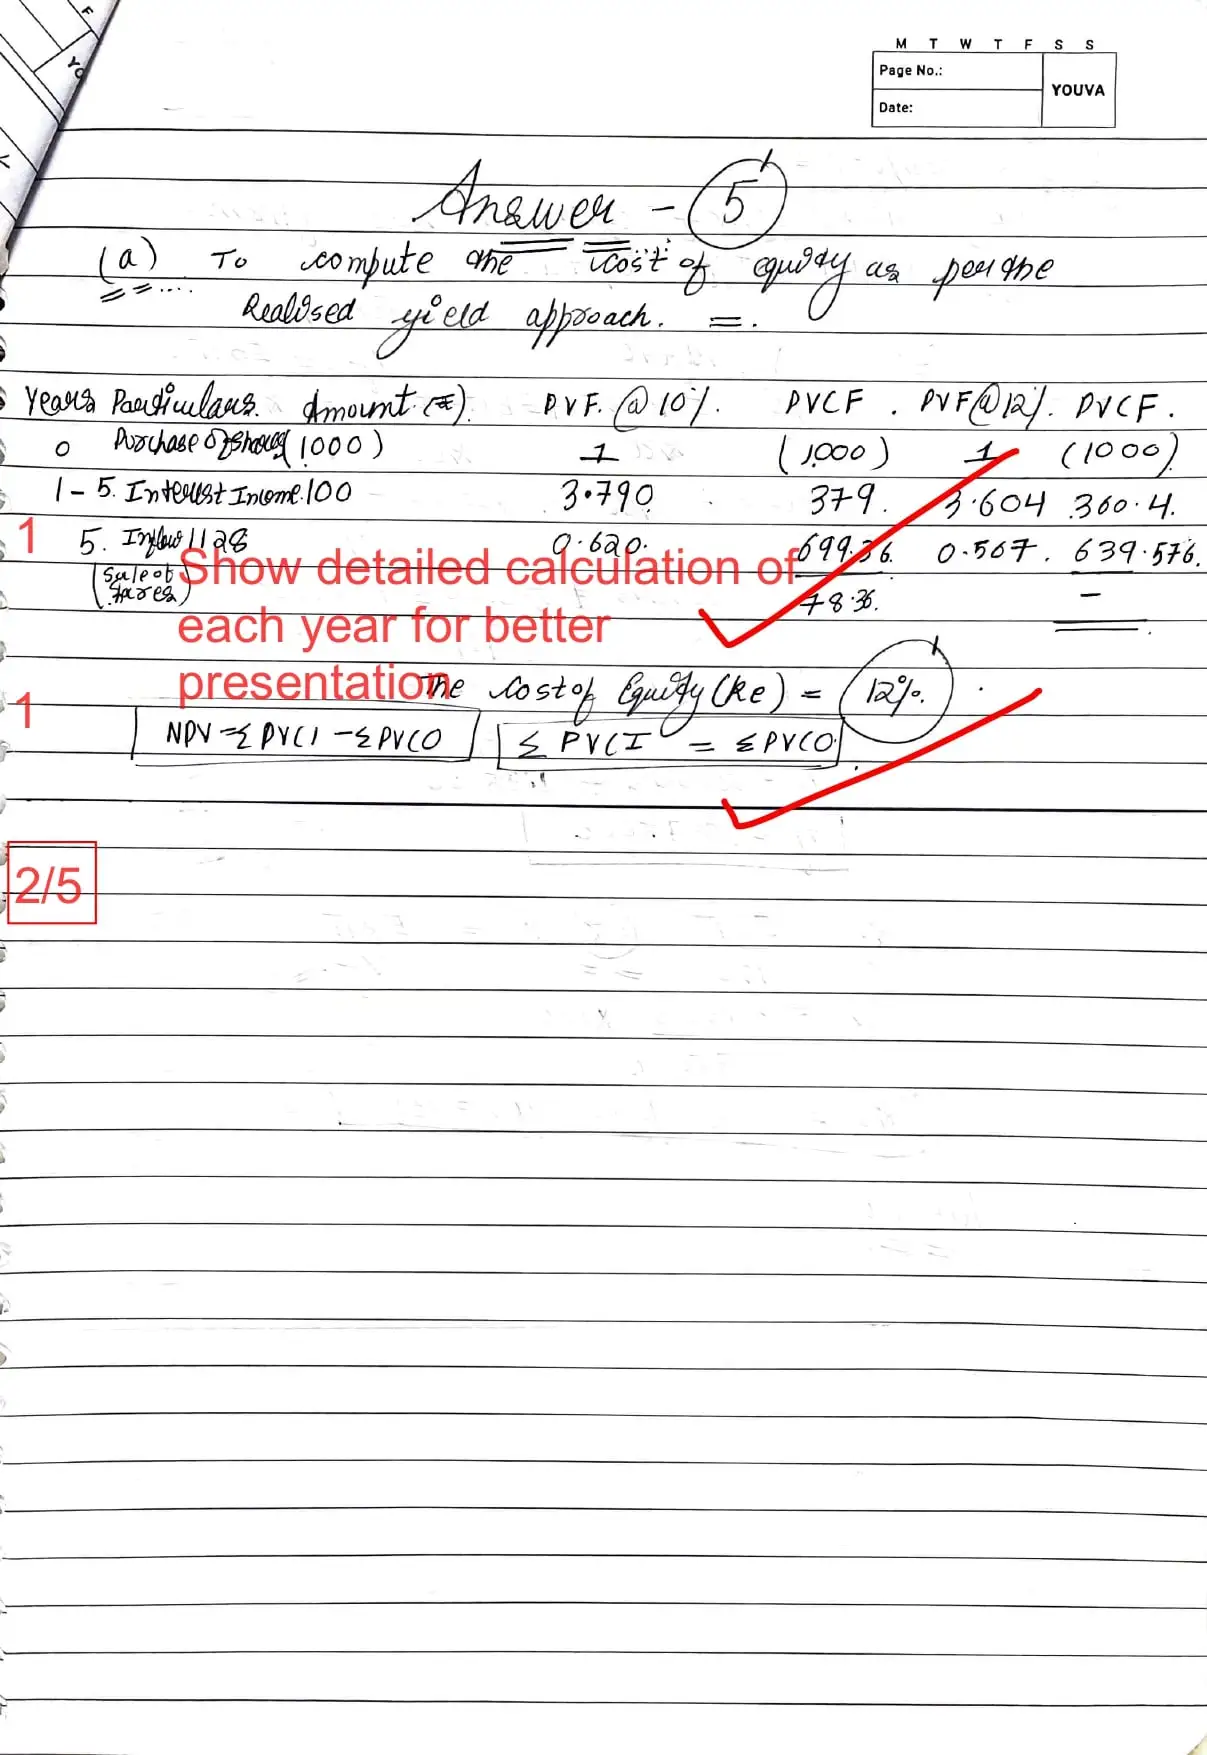 M T W T F S S
Page No.:
YOUVA
Date:
Answer - 5
(a) To compute the cost of equity as per the
Realised yield approach. =.
Years Particulars. Amount (₹). PVF. @ 10%. PVCF. PVF@12%. PVCF.
0 Purchase of shares (1000) 1 (1000) 1 (1000)
1-5. Interest Income. 100 3.790 379. 3.604 360.4.
1 5. Inflow 1128 0.620. 699.36. 0.567. 639.576.
(Sale of shares) 78.36. -
Show detailed calculation of
each year for better
presentation
The Cost of Equity (Ke) = 12%.
1
NPV = Σ PVCI - Σ PVCO Σ PVCI = Σ PVCO.
2/5